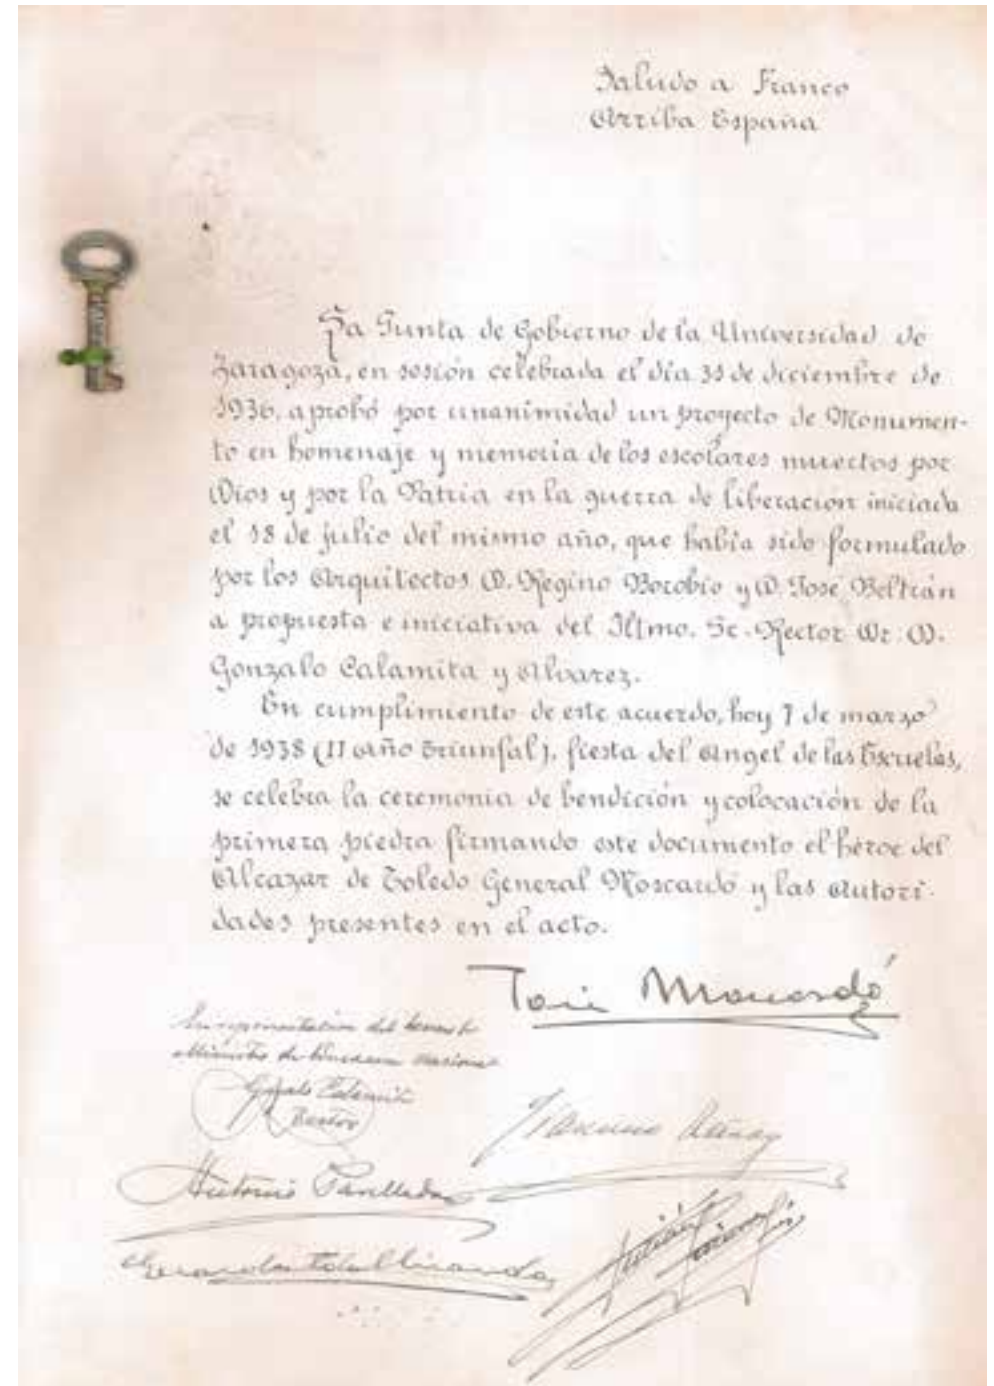 Saludo a Franco
Arriba España
La Junta de Gobierno de la Universidad de
Zaragoza, en sesión celebrada el día 31 de diciembre de
1936, aprobó por unanimidad un proyecto de Monumen-
to en homenaje y memoria de los escolares muertos por
Dios y por la Patria en la guerra de liberación iniciada
el 18 de julio del mismo año, que había sido formulado
por los Arquitectos D. Regino Borobio y D. José Beltrán
a propuesta e iniciativa del Iltmo. Sr. Rector Dr. D.
Gonzalo Calamita y Alvarez.
En cumplimiento de este acuerdo, hoy 7 de marzo
de 1938 (II año triunfal), fiesta del Angel de las Escuelas,
se celebra la ceremonia de bendición y colocación de la
primera piedra firmando este documento el héroe del
Alcazar de Toledo General Moscardó y las Autori-
dades presentes en el acto.
José Moscardó
En representación del
Ministro de Educación Nacional
Gonzalo Calamita
Rector
Antonio